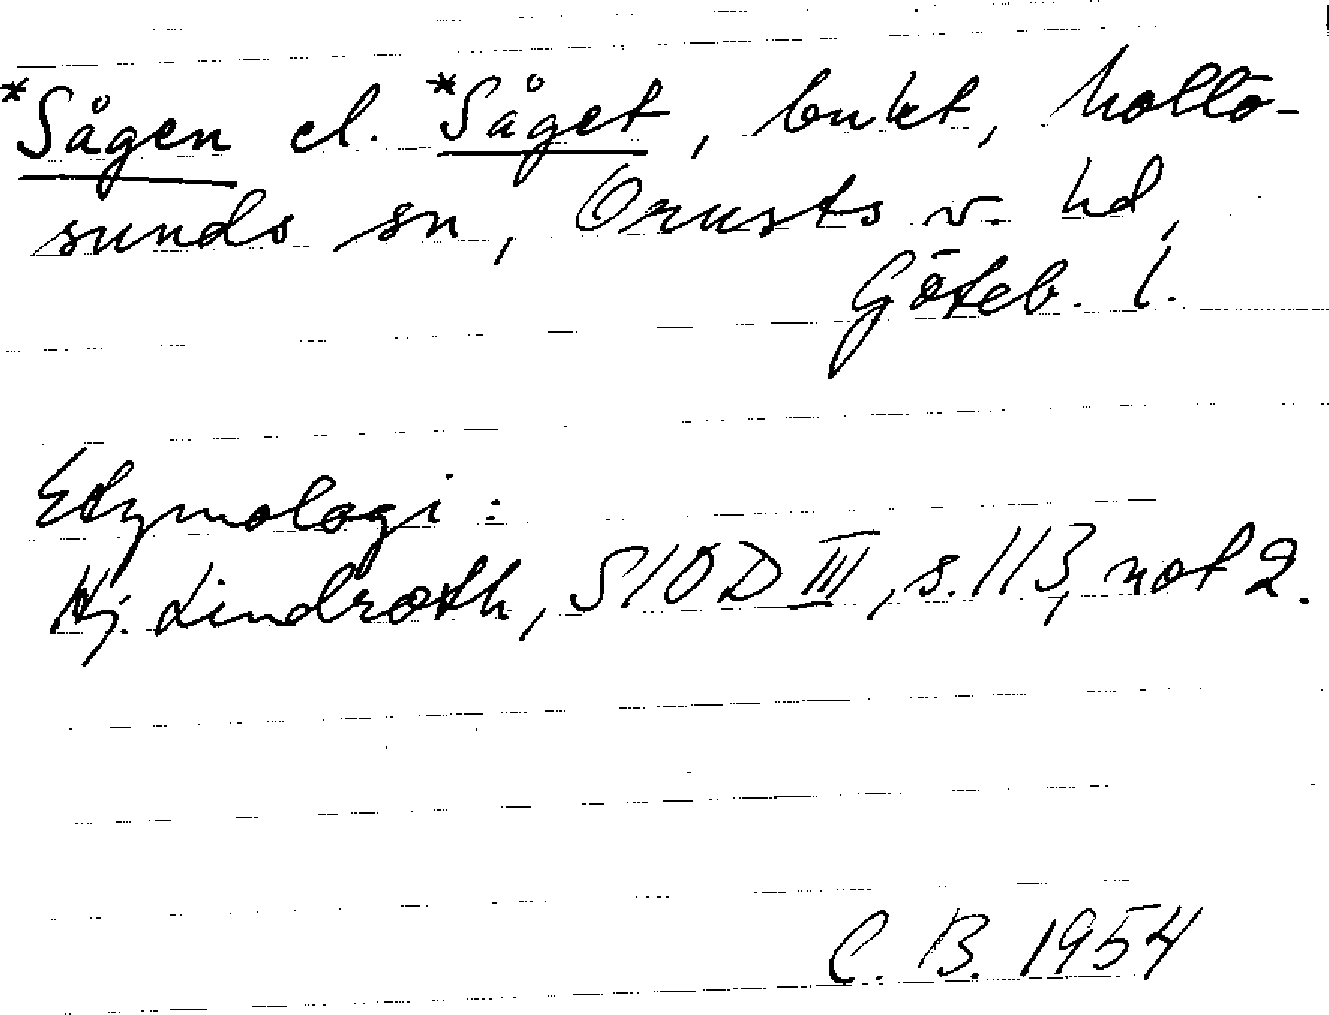 *Sågen el. *Såget, bukt, Mollö-
sunds sn, Orusts v. hd,
Göteb. l.
Etymologi:
Hj. Lindroth, SIOD III, s. 113, not 2.
C. B. 1954